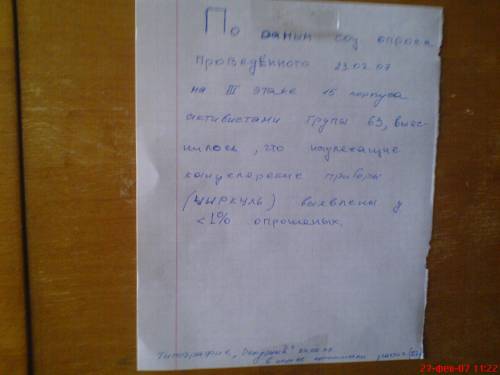 По данным соц опроса
проведённого 23.02.07
на III этаже 15 корпуса
активистами групы 63, выяс-
нилось, что надлежащие
канцелярские приборы
(циркуль) выявлены у
<1% опрошеных.
Типография "Дежурный"
27-фев-07 11:22